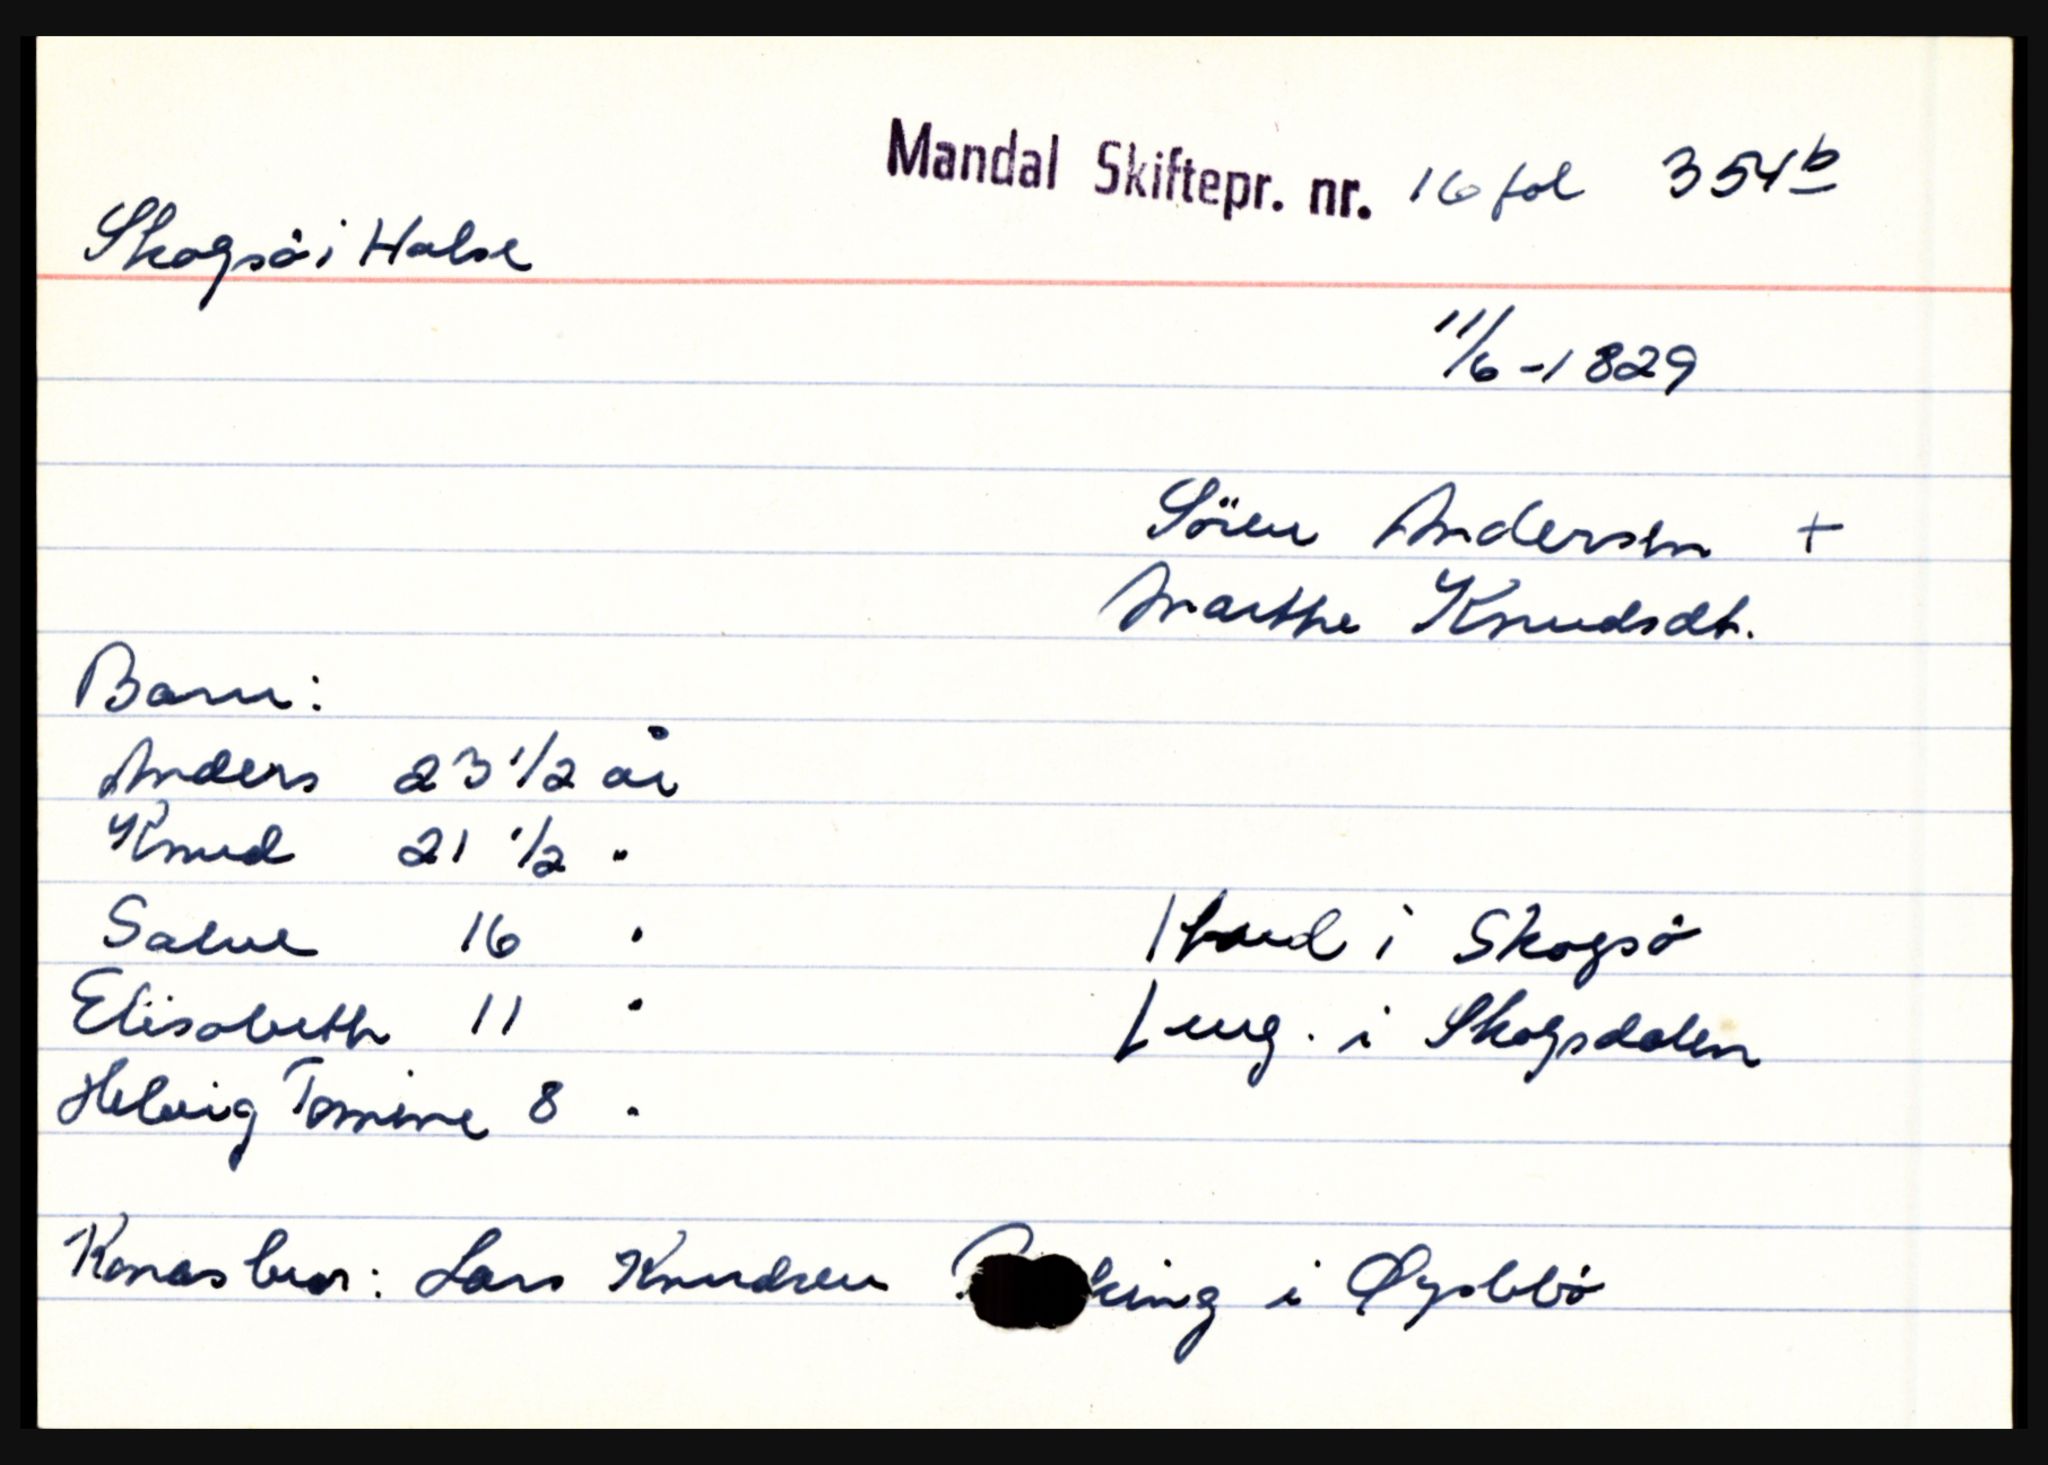 Mandal Skiftepr. nr. 16 fol 354b
Skogsö i Halse
11/6-1829
Sören Andersen +
Marthe Knudsdt.
Barn:
Anders 23 1/2 år
Knud 21 1/2 "
Salve 16 "
Elisabeth 11 "
Helvig Tomine 8 "
1 hud i Skogsö
1 eng. i Skogsdalen
Konas bror: Lars Knudsen i Øyslebö